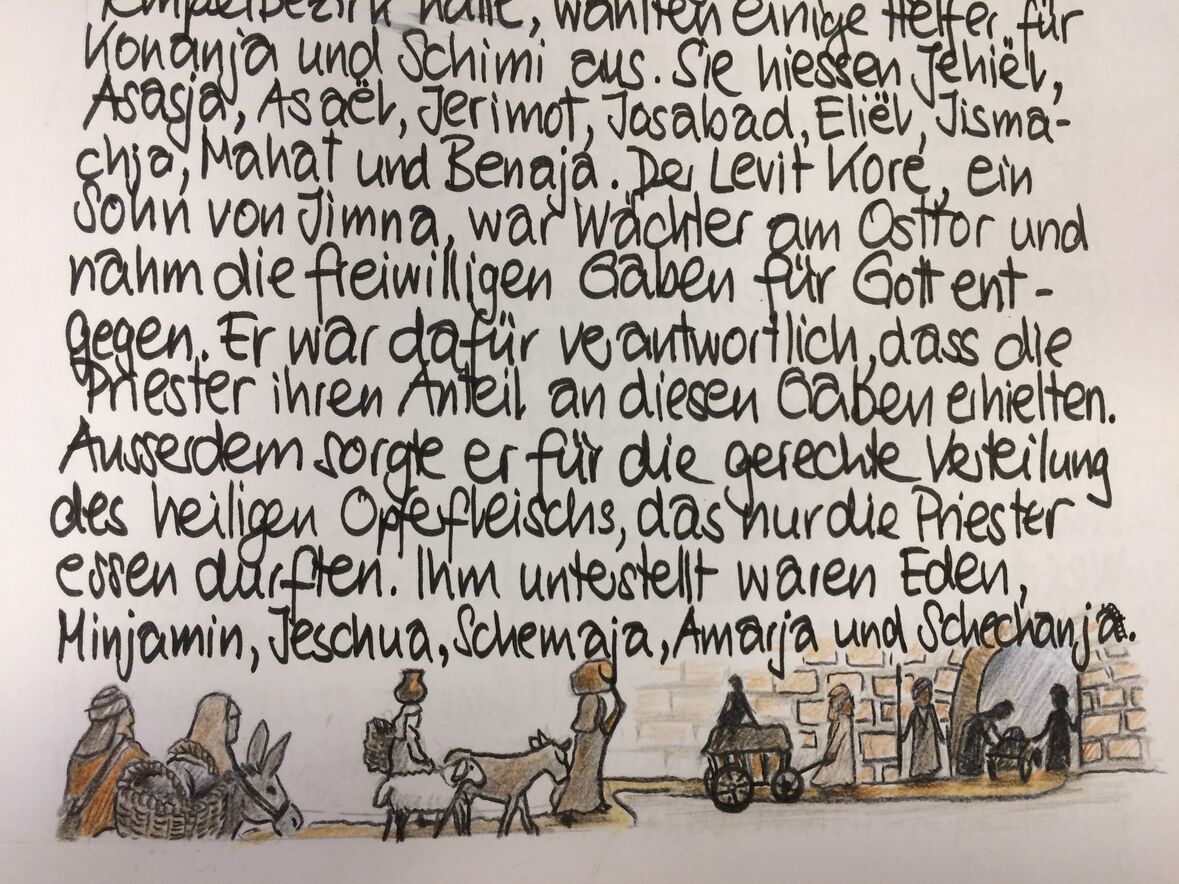 Tempelbezirk hatte, wählten einige Helfer für
Konanja und Schimi aus. Sie hiessen Jehiël,
Asasja, Asaël, Jerimot, Josabad, Eliël, Jisma-
chja, Mahat und Benaja. Der Levit Kore, ein
Sohn von Jimna, war Wächter am Osttor und
nahm die freiwilligen Gaben für Gott ent-
gegen. Er war dafür verantwortlich, dass die
Priester ihren Anteil an diesen Gaben erhielten.
Ausserdem sorgte er für die gerechte Verteilung
des heiligen Opferfleischs, das nur die Priester
essen durften. Ihm unterstellt waren Eden,
Minjamin, Jeschua, Schemaja, Amarja und Schechanja.